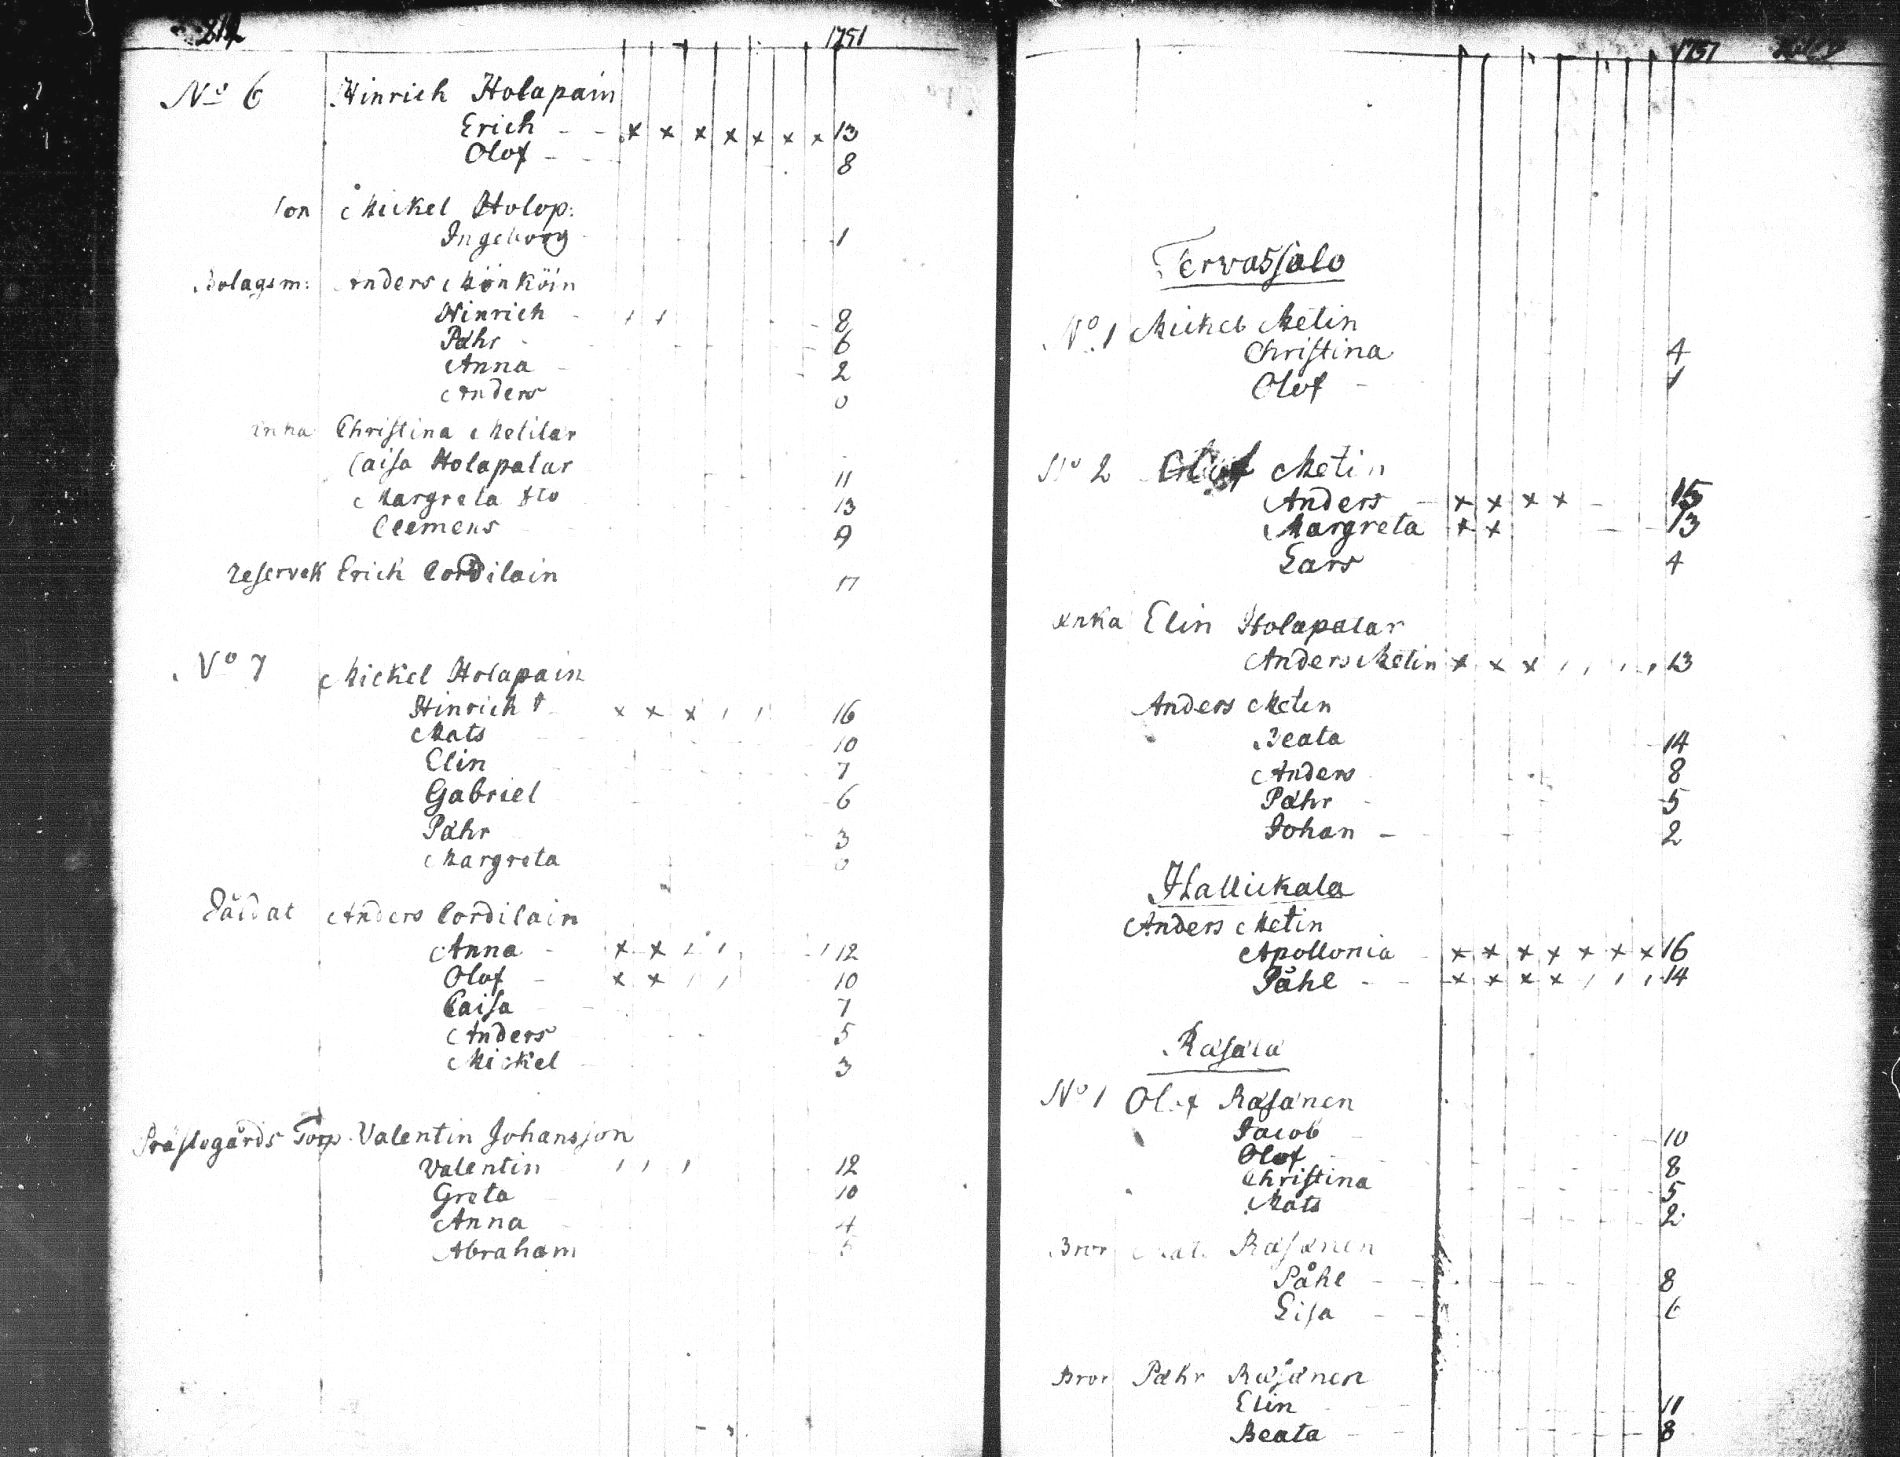 214 1751
No 6 Hinrich Holapain
Erich - - x x x x x x x 13
Olof - - - 8
Son Mickel Holop:
Ingeborg 1
Bolagsm: Anders Mönköin
Hinrich 8
Pähr 6
Anna 2
Anders 0
Enka Christina Metilar
Caisa Holapatar 11
Margreta Dto 13
Clemens 9
Reservek Erich Cordilain 17
No 7 Mickel Holapain
Hinrich † x x x 16
Mats 10
Elin 7
Gabriel 6
Pähr 3
Margreta 0
Såldat Anders Cordilain
Anna - x x 12
Olof - x x 10
Caisa 7
Anders 5
Mickel 3
Prästegårds Torp Valentin Johansson
Valentin 12
Greta 10
Anna 4
Abraham 5
1751
Tervassalo
No 1 Mickel Metin
Christina 4
Olof - 1
No 2 Olof Metin
Anders - x x x x - 15
Margreta x x 13
Lars 4
Enka Elin Holapatar
Anders Metin x x x 13
Anders Metin
Beata 14
Anders 8
Pähr 5
Johan - 2
Hallickala
Anders Metin
Apollonia x x x x x x x 16
Påhl - - x x x x 14
Räsälä
No 1 Olof Räsänen
Jacob 10
Olof 8
Christina 5
Mats 2
Bror Mats Räsänen
Påhl 8
Lisa 6
Bror Pähr Räsänen
Elin 11
Beata 8